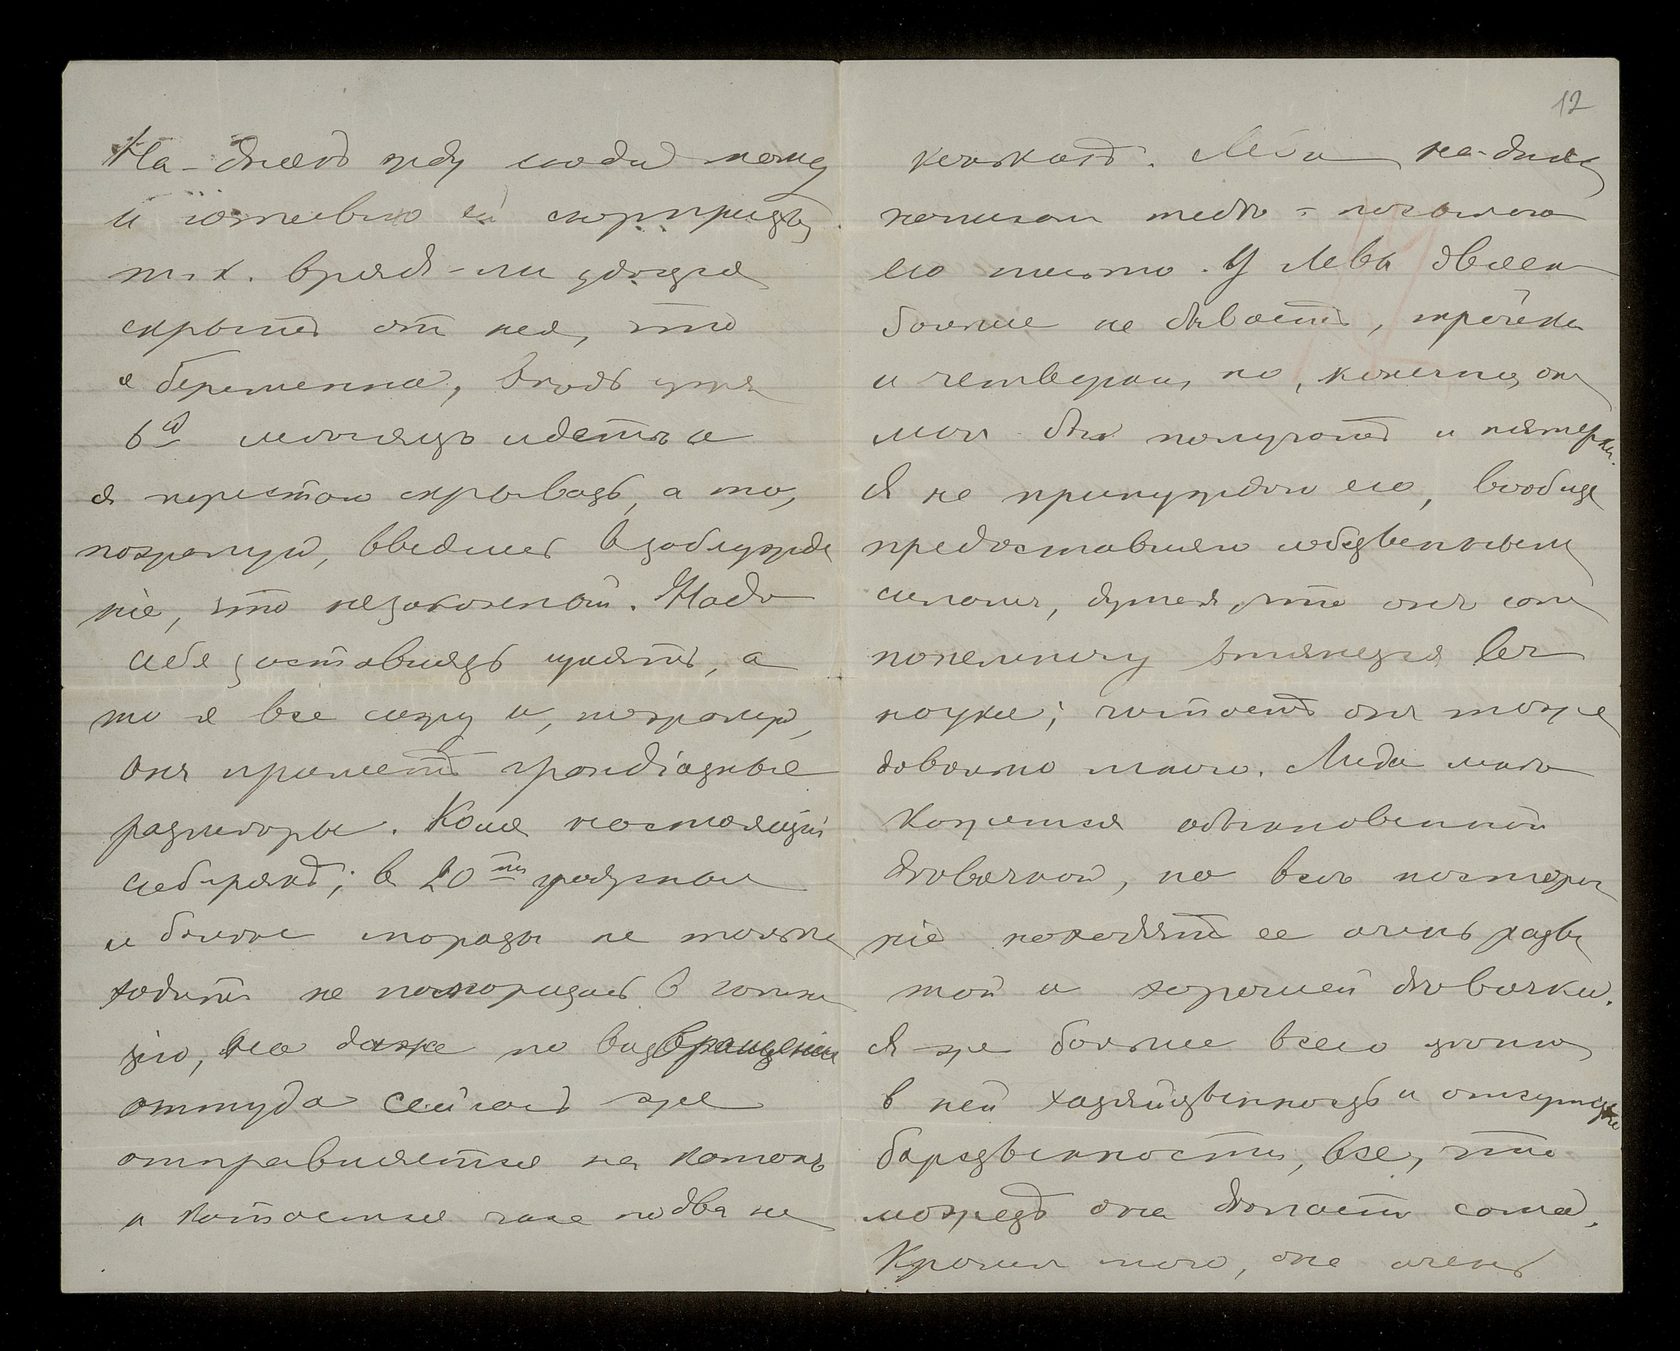 На-дняхъ жду сюда маму
и готовлю ей сюрпризъ,
т. к. врядъ-ли удастся
скрыть отъ нея, что
я беременна, вѣдь уже
6й мѣсяцъ идетъ и
я перестаю скрывать, а то,
пожалуй, введешь в заблужде
ніе, что незаконный. Надо
себя заставлять гулять, а
то я все сижу и, пожалуй,
онъ приметъ грандіозные
размѣры. Коля настоящій
сибирякъ; в 20ти градусные
и болѣе морозы не только
ходитъ не поморщась в гимна
зію, но даже по возвращеніи
оттуда сейчасъ же
отправляется на катокъ
и катается часа по два на
12
конькахъ. Лева на-дняхъ
написалъ тебѣ - посылаю
его письмо. У Левы двоек
больше не бываетъ, тройки
и четверки, но, конечно, онъ
могъ бы получать и пятерки.
Я не принуждаю его, вообще
предоставляю собственнымъ
силамъ, думая, что онъ самъ
понемногу втянется во все
науки; читаетъ онъ тоже
довольно много. Лида мнѣ
кажется обыкновенной
дѣвочкой, но всѣ посторон
ніе находятъ ее очень разви
той и хорошей дѣвочкой.
Я же больше всего цѣню
в ней хозяйственность и отсутствіе
барственности, все, что
можетъ она дѣлаетъ сама.
Кромѣ того, она очень